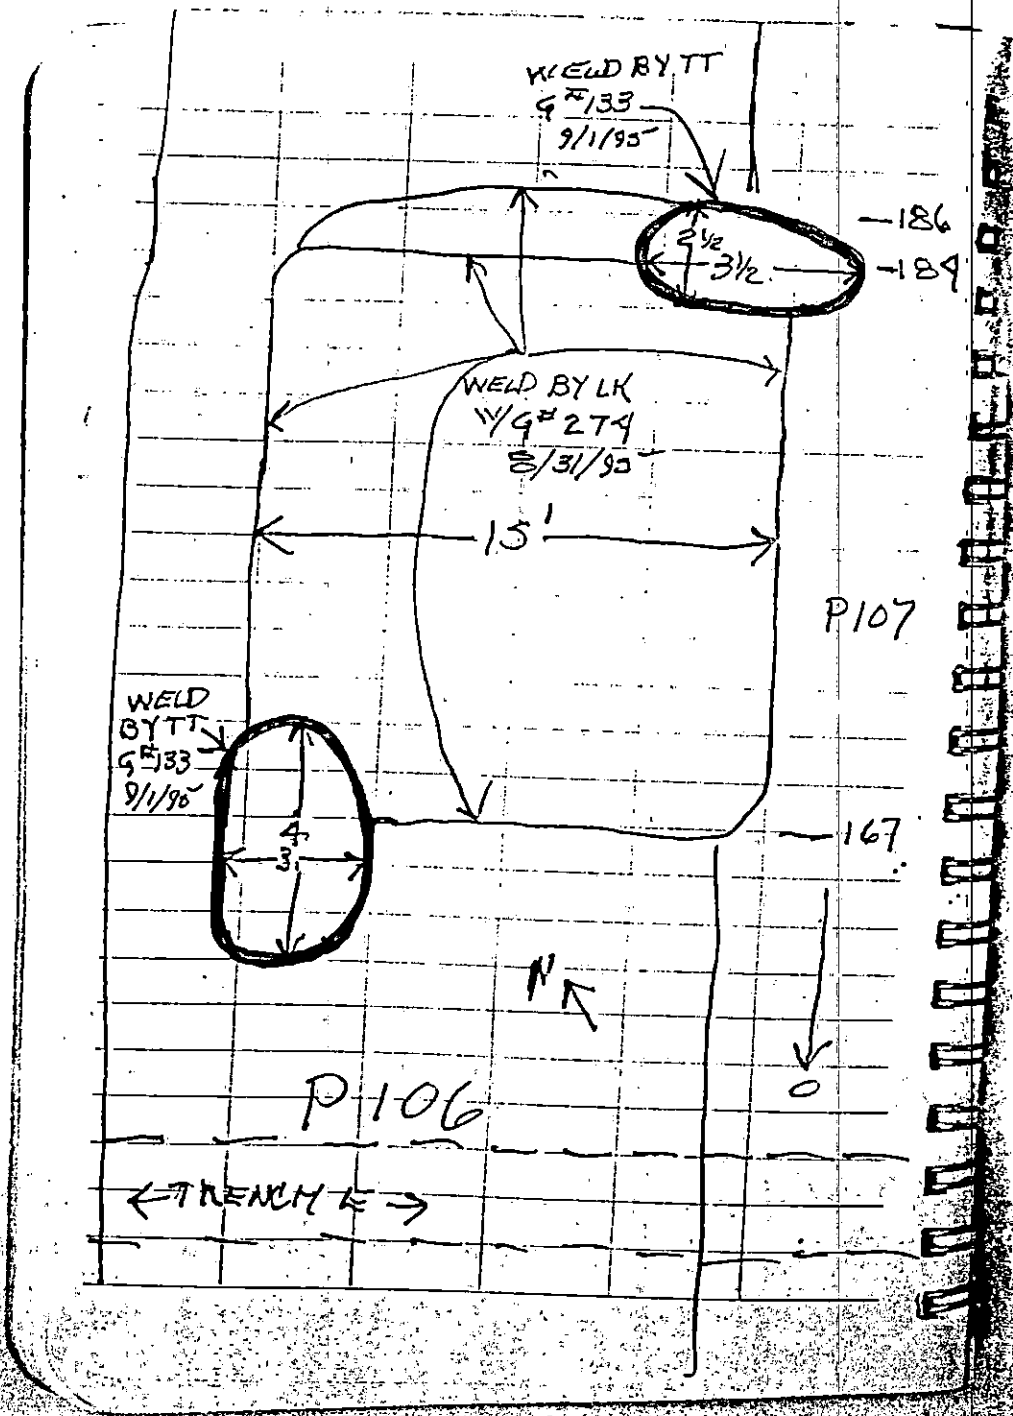 WELD BY TT
G#133
9/1/95
186
2 1/2
3 1/2
184
WELD BY LK
W/G#274
8/31/95
15'
P107
WELD
BY TT
G#133
9/1/95
4
3
167
N
0
P106
TRENCH E